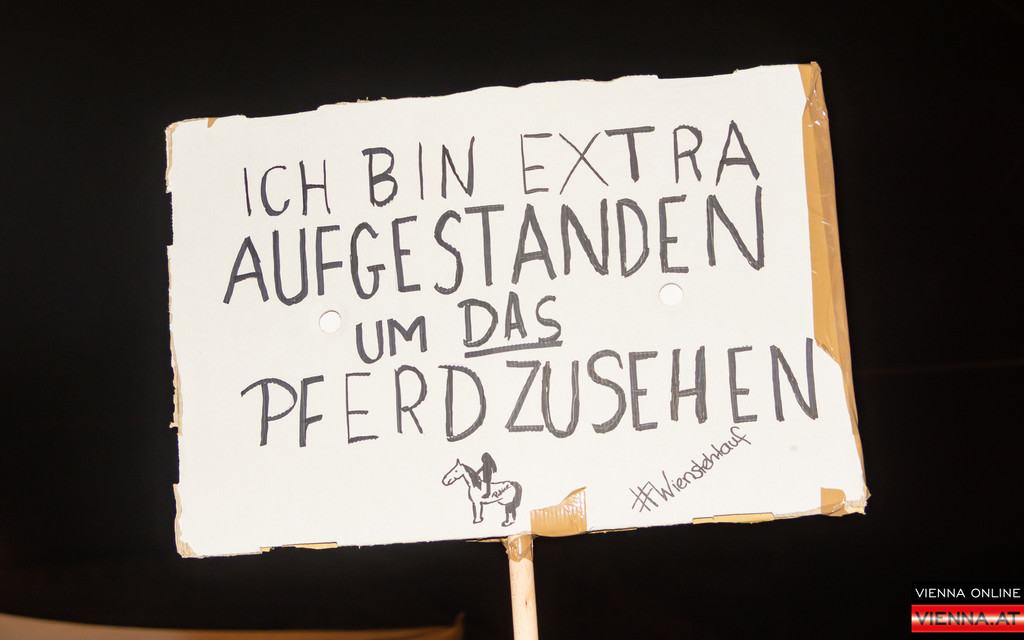 ICH BIN EXTRA
AUFGESTANDEN
UM DAS
PFERD ZUSEHEN
#Wienstehtauf
VIENNA ONLINE
VIENNA.AT